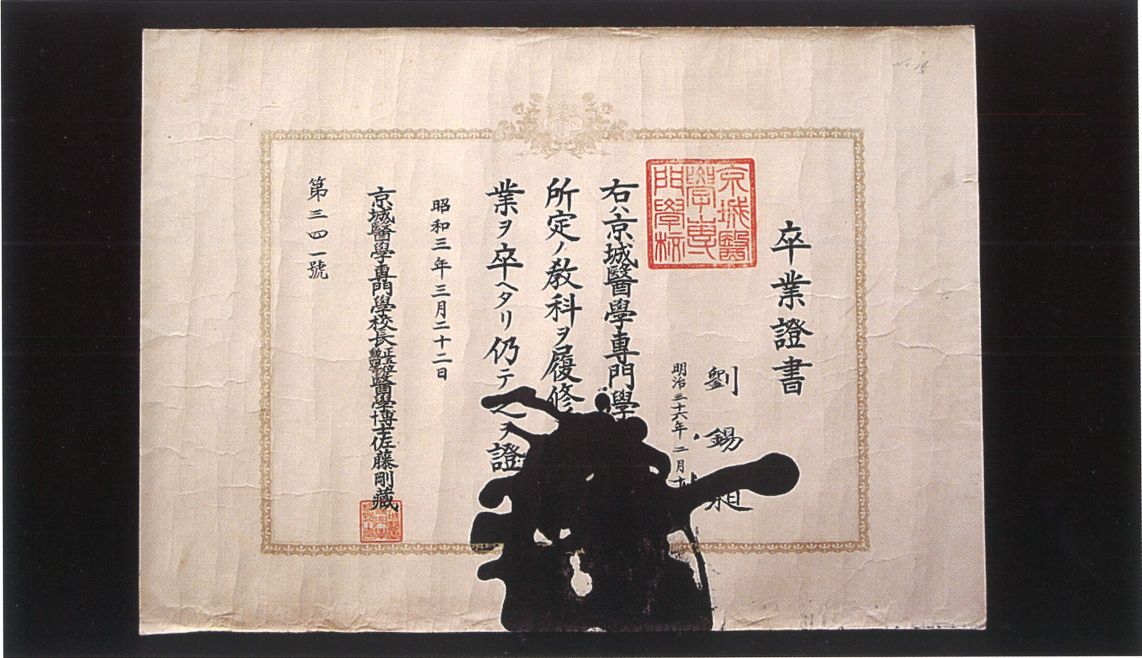 卒業證書
劉錫
明治三十六年二月十
京城醫學專門學校
右ハ京城醫學專門學
所定ノ教科ヲ履修
業ヲ卒ヘタリ仍テ之ヲ證
昭和三年三月二十二日
京城醫學專門學校長醫學博士佐藤剛藏
第三四一號